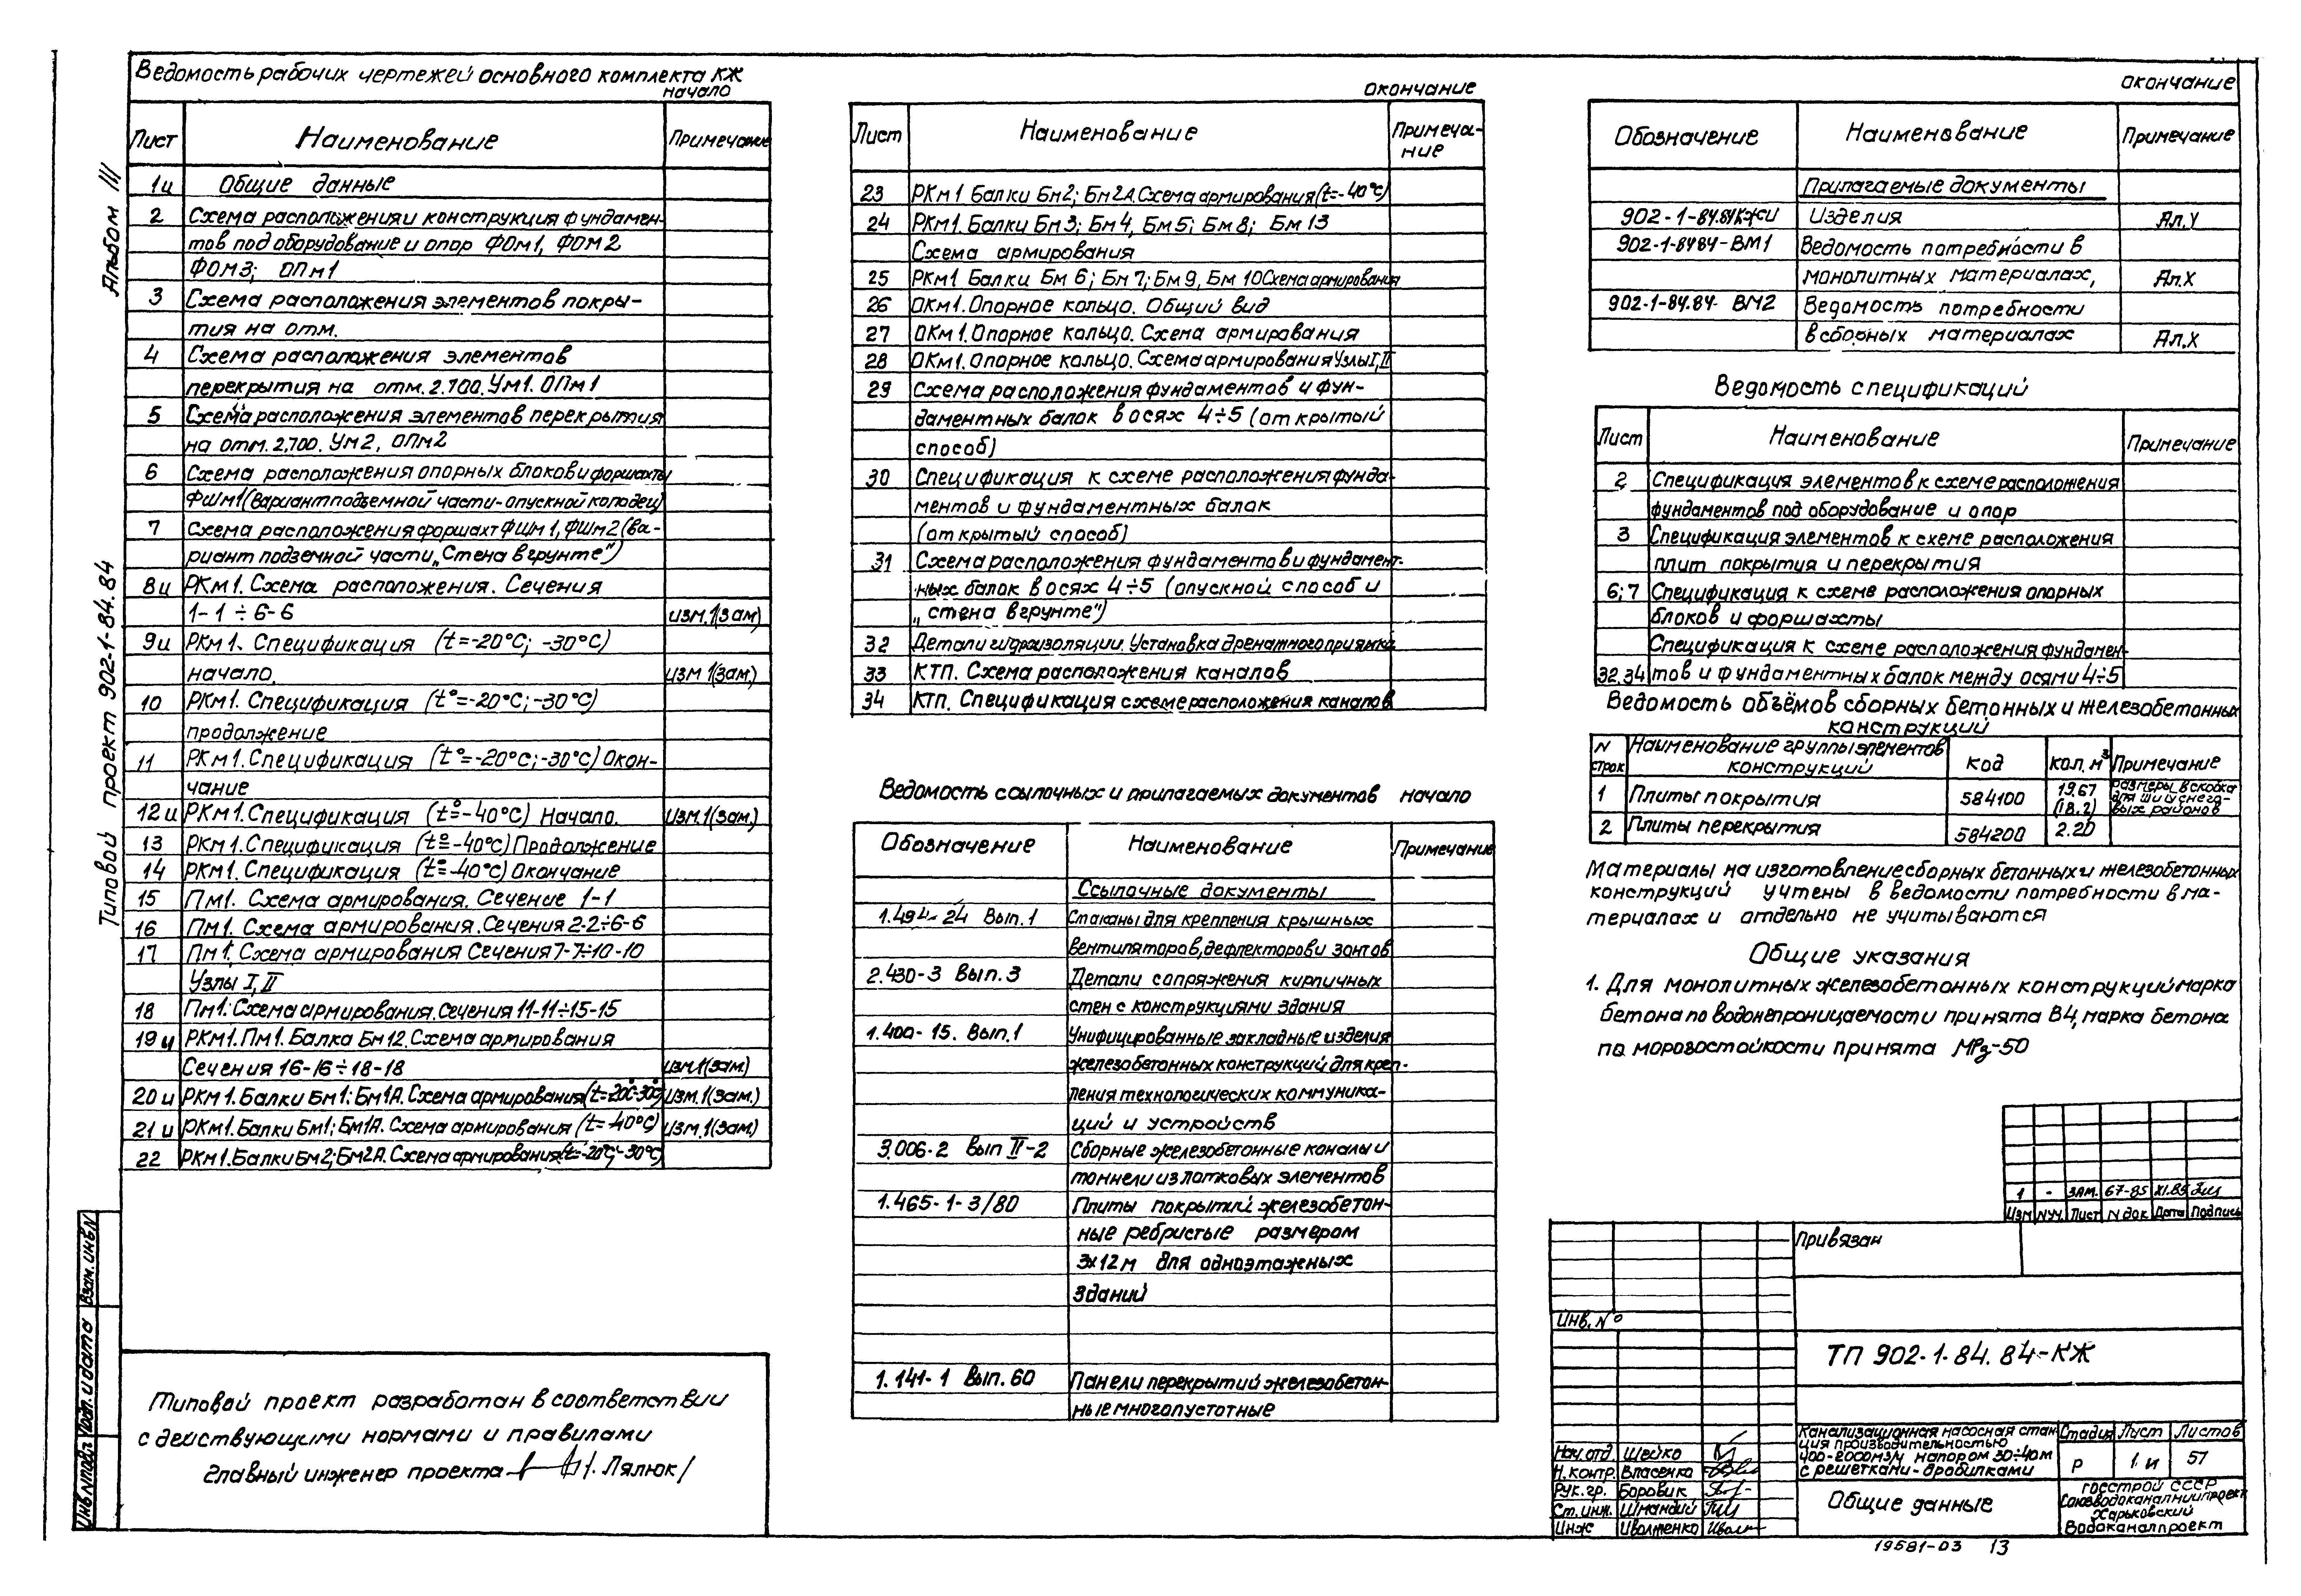 Альбом III
Типовой проект 902-1-84.84
Ведомость рабочих чертежей основного комплекта КЖ
начало
Лист Наименование Примечание
1и Общие данные
2 Схема расположения и конструкция фундамен-
тов под оборудование и опор ФОм1, ФОм2
ФОм3; ОПм1
3 Схема расположения элементов покры-
тия на отм.
4 Схема расположения элементов
перекрытия на отм. 2.700. Ум1. ОПм1
5 Схема расположения элементов перекрытия
на отм. 2,700. Ум2, ОПм2
6 Схема расположения опорных блоков и форшахты
ФШм1 (Вариант подземной части-опускной колодец)
7 Схема расположения форшахт ФШм1, ФШм2 (ва-
риант подземной части „Стена в грунте")
8и РКм1. Схема расположения. Сечения
1-1 ÷ 6-6 изм.1(зам)
9и РКм1. Спецификация (t=-20°С; -30°С)
начало. изм 1(зам.)
10 РКм1. Спецификация (t°=-20°С; -30°С)
продолжение
11 РКм1. Спецификация (t°=-20°С; -30°С) Окон-
чание
12и РКм1. Спецификация (t°=-40°С) Начало. изм.1(зам.)
13 РКм1. Спецификация (t°=-40°С) Продолжение
14 РКм1. Спецификация (t°=-40°С) Окончание
15 Пм1. Схема армирования. Сечение 1-1
16 Пм1. Схема армирования. Сечения 2-2÷6-6
17 Пм1. Схема армирования Сечения 7-7÷10-10
Узлы I, II
18 Пм1. Схема армирования. Сечения 11-11÷15-15
19и РКм1. Пм1. Балка Бм12. Схема армирования
Сечения 16-16÷18-18 изм.1(зам)
20и РКм1. Балки Бм1; Бм1А. Схема армирования (t=-20°С-30°С) изм.1(зам.)
21и РКм1. Балки Бм1; Бм1А. Схема армирования (t=-40°С) изм.1(зам)
22 РКм1. Балки Бм2; Бм2А. Схема армирования (t=-20°С-30°С)
Типовой проект разработан в соответствии
с действующими нормами и правилами
Главный инженер проекта /. Лялюк/
Инв.N подл. Подп. и дата Взам. инв.N
окончание
Лист Наименование Примеча-
ние
23 РКм1 Балки Бм2; Бм2А. Схема армирования (t=-40°С)
24 РКм1. Балки Бм3; Бм4, Бм5; Бм8; Бм13
Схема армирования
25 РКм1 Балки Бм6; Бм7; Бм9, Бм10 Схема армирования
26 ОКм1. Опорное кольцо. Общий вид
27 ОКм1. Опорное кольцо. Схема армирования
28 ОКм1. Опорное кольцо. Схема армирования Узлы I, II
29 Схема расположения фундаментов и фун-
даментных балок в осях 4÷5 (открытый
способ)
30 Спецификация к схеме расположения фунда-
ментов и фундаментных балок
(открытый способ)
31 Схема расположения фундаментов и фундамент-
ных балок в осях 4÷5 (опускной способ и
„стена в грунте")
32 Детали гидроизоляции. Установка дренажного приямка
33 КТП. Схема расположения каналов
34 КТП. Спецификация к схеме расположения каналов
Ведомость ссылочных и прилагаемых документов начало
Обозначение Наименование Примечание
Ссылочные документы
1.494-24 Вып.1 Стаканы для крепления крышных
вентиляторов, дефлекторов и зонтов
2.430-3 Вып.3 Детали сопряжения кирпичных
стен с конструкциями здания
1.400-15. Вып.1 Унифицированные закладные изделия
железобетонных конструкций для креп-
ления технологических коммуника-
ций и устройств
3.006-2 вып II-2 Сборные железобетонные каналы и
тоннели из лотковых элементов
1.465-1-3/80 Плиты покрытий железобетон-
ные ребристые размером
3х12м для одноэтажных
зданий
1.141-1 Вып.60 Панели перекрытий железобетон-
ные многопустотные
окончание
Обозначение Наименование Примечание
Прилагаемые документы
902-1-84.84КЖИ Изделия Ал.V
902-1-8484-ВМ1 Ведомость потребности в
монолитных материалах, Ал.X
902-1-84.84-ВМ2 Ведомость потребности
в сборных материалах Ал.X
Ведомость спецификаций
Лист Наименование Примечание
2 Спецификация элементов к схеме расположения
фундаментов под оборудование и опор
3 Спецификация элементов к схеме расположения
плит покрытия и перекрытия
6;7 Спецификация к схеме расположения опорных
блоков и форшахты
Спецификация к схеме расположения фундамен-
32.34 тов и фундаментных балок между осями 4÷5
Ведомость объёмов сборных бетонных и железобетонных
конструкций
N строк Наименование группы элементов конструкций Код Кол. м³ Примечание
1 Плиты покрытия 584100 19,67 (18.2) Размеры в скобках для снеговых районов
2 Плиты перекрытия 584200 2.20
Материалы на изготовление сборных бетонных и железобетонных
конструкций учтены в ведомости потребности в ма-
териалах и отдельно не учитываются
Общие указания
1. Для монолитных железобетонных конструкций марка
бетона по водонепроницаемости принята В4, марка бетона
по морозостойкости принята Мрз-50
1 - Зам. 67-85 XI.85
Изм N уч. Лист N док Дата Подпись
Привязан
Инв. N°
ТП 902-1-84.84-КЖ
Нач. отд. Шейко
Н. контр. Власенко
Рук. гр. Боровик
Ст. инж. Шмандий
Инж Иволженко
Канализационная насосная стан-
ция производительностью
400-2000м3/ч напором 30÷40м
с решетками-дробилками
Стадия Лист Листов
Р 1.и 57
Общие данные
Госстрой СССР
Союзводоканалниипроект
Харьковский
Водоканалпроект
19581-03 13